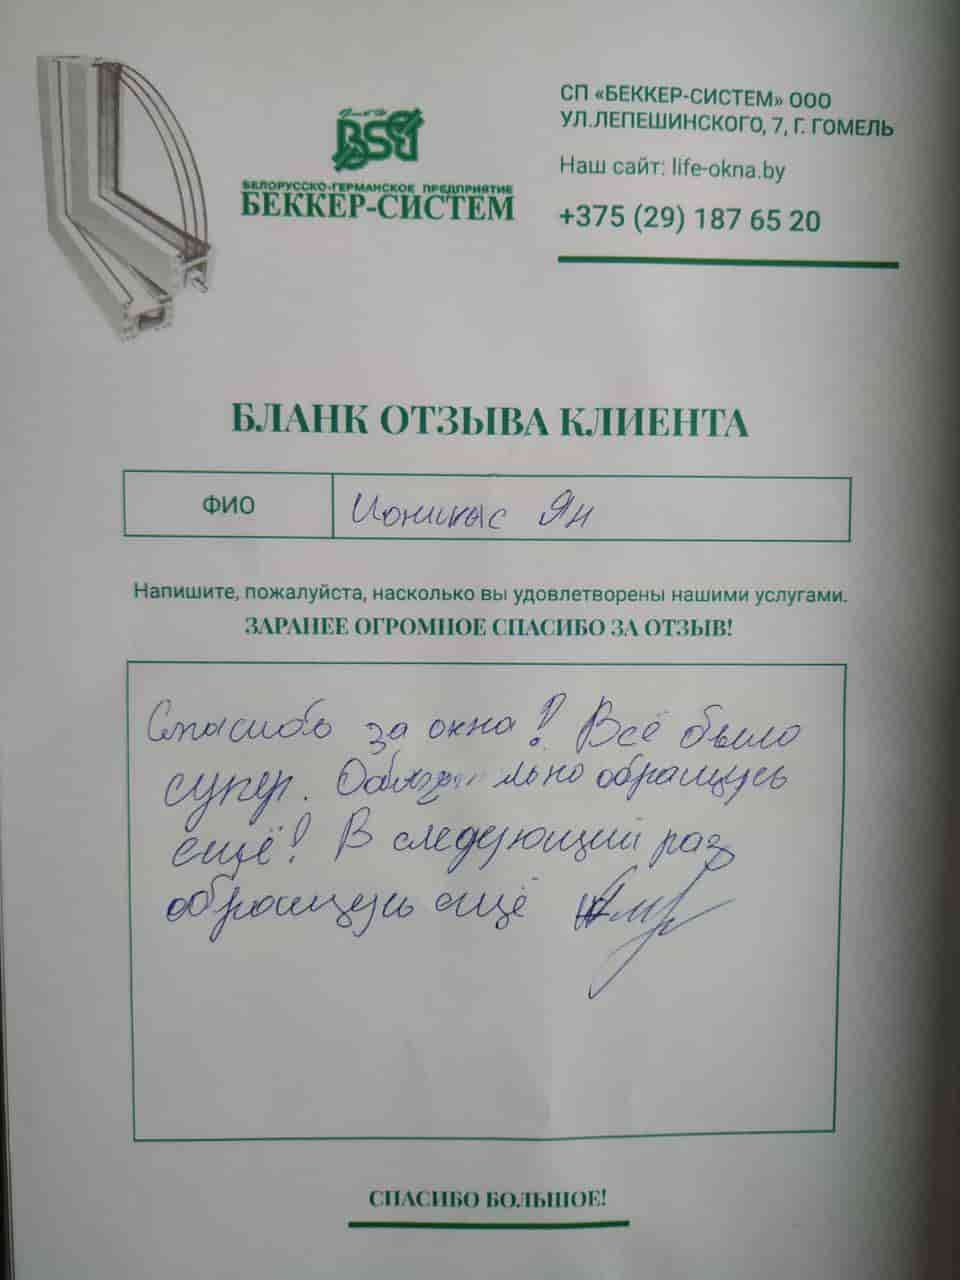 СП «БЕККЕР-СИСТЕМ» ООО
УЛ.ЛЕПЕШИНСКОГО, 7, Г. ГОМЕЛЬ
Наш сайт: life-okna.by
+375 (29) 187 65 20
BSG
БЕЛОРУССКО-ГЕРМАНСКОЕ ПРЕДПРИЯТИЕ
БЕККЕР-СИСТЕМ
БЛАНК ОТЗЫВА КЛИЕНТА
ФИО
Ионикас Ян
Напишите, пожалуйста, насколько вы удовлетворены нашими услугами.
ЗАРАНЕЕ ОГРОМНОЕ СПАСИБО ЗА ОТЗЫВ!
Спасибо за окна! Всё было
супер. Обязательно обращусь
ещё! В следующий раз
обращусь ещё
СПАСИБО БОЛЬШОЕ!